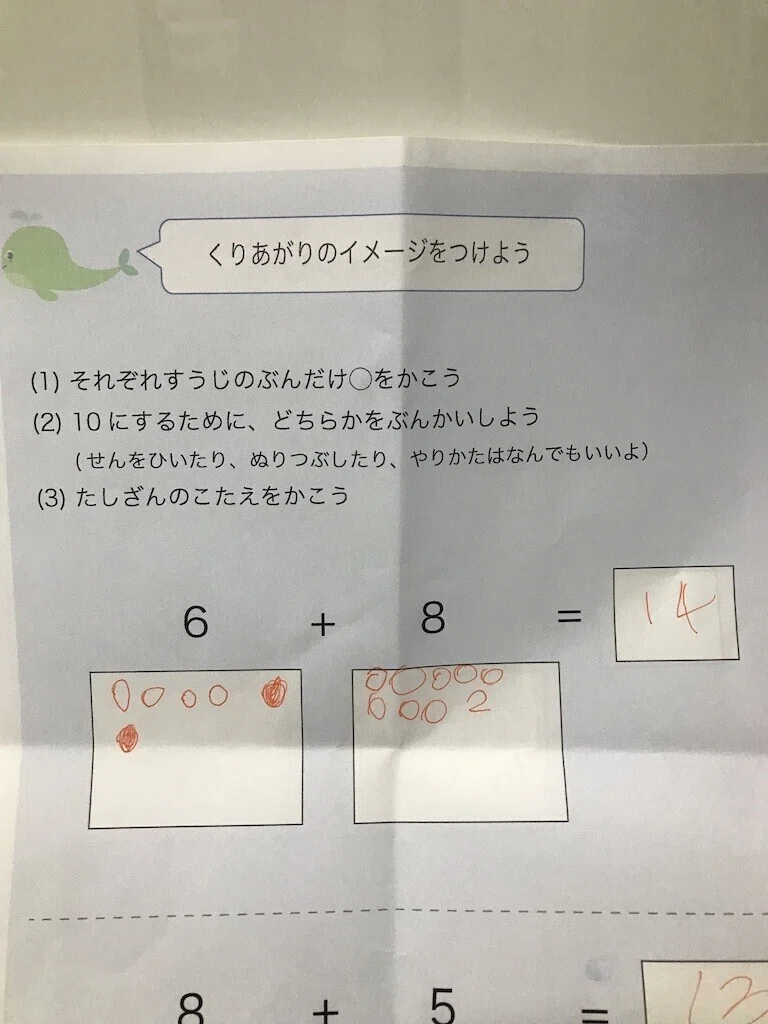 くりあがりのイメージをつけよう
(1) それぞれすうじのぶんだけ○をかこう
(2) 10 にするために、どちらかをぶんかいしよう
(せんをひいたり、ぬりつぶしたり、やりかたはなんでもいいよ)
(3) たしざんのこたえをかこう
6 + 8 = 14
2
8 + 5 = 13